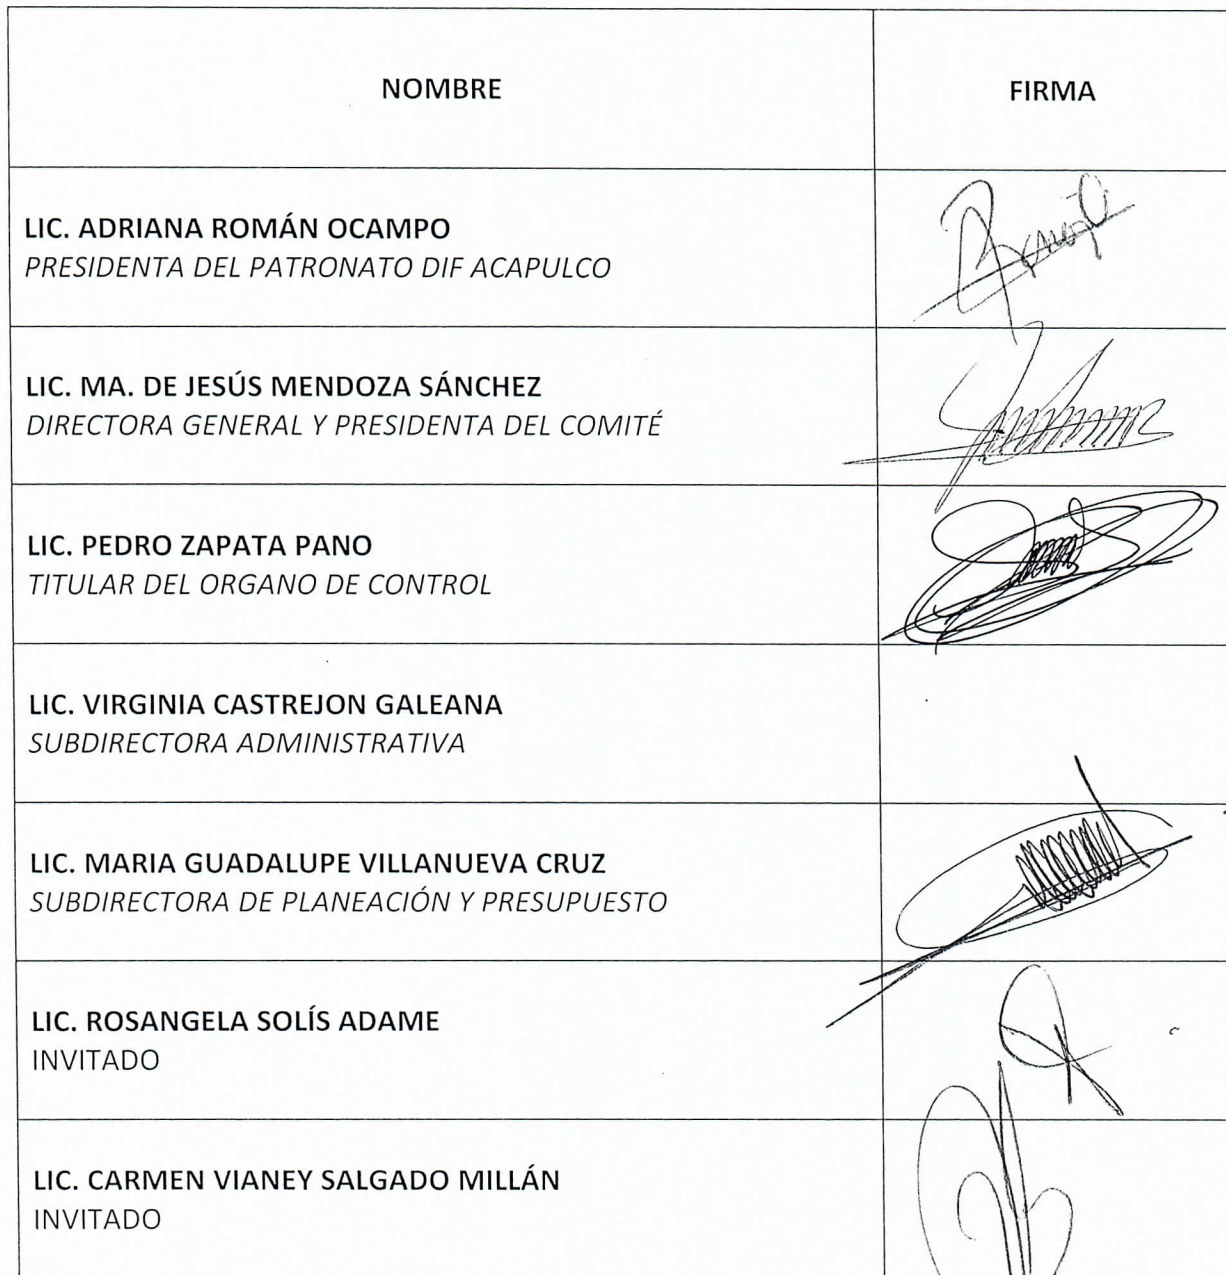 NOMBRE
FIRMA
LIC. ADRIANA ROMÁN OCAMPO
PRESIDENTA DEL PATRONATO DIF ACAPULCO
LIC. MA. DE JESÚS MENDOZA SÁNCHEZ
DIRECTORA GENERAL Y PRESIDENTA DEL COMITÉ
LIC. PEDRO ZAPATA PANO
TITULAR DEL ORGANO DE CONTROL
LIC. VIRGINIA CASTREJON GALEANA
SUBDIRECTORA ADMINISTRATIVA
LIC. MARIA GUADALUPE VILLANUEVA CRUZ
SUBDIRECTORA DE PLANEACIÓN Y PRESUPUESTO
LIC. ROSANGELA SOLÍS ADAME
INVITADO
LIC. CARMEN VIANEY SALGADO MILLÁN
INVITADO